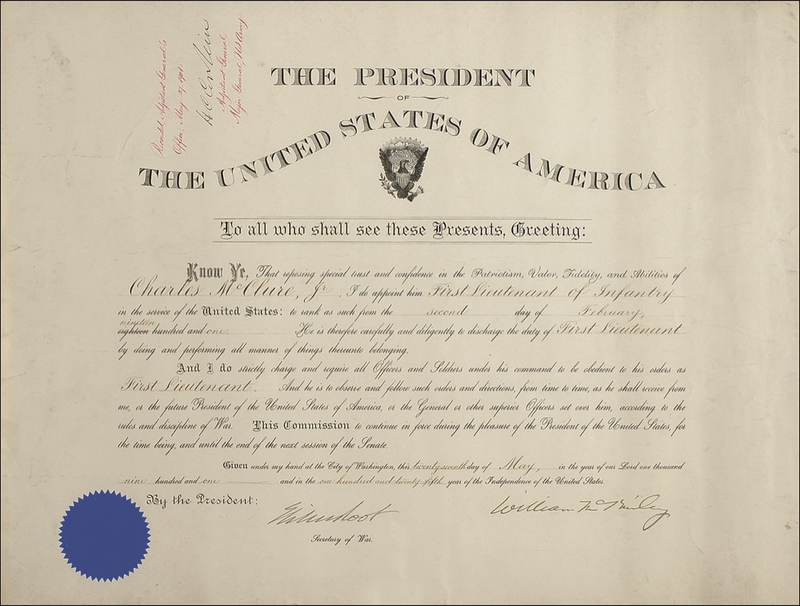 Recorded, Adjutant General's
Office, May 27, 1901.
Adjutant General,
Major General, U.S. Army
THE PRESIDENT
OF
THE UNITED STATES OF AMERICA
To all who shall see these Presents, Greeting:
Know Ye, That reposing special trust and confidence in the Patriotism, Valor, Fidelity, and Abilities of
Charles McClure, Jr., I do appoint him First Lieutenant of Infantry
in the service of the United States: to rank as such from the second day of February,
nineteen
eighteen hundred and one. He is therefore carefully and diligently to discharge the duty of First Lieutenant
by doing and performing all manner of things thereunto belonging.
And I do strictly charge and require all Officers and Soldiers under his command to be obedient to his orders as
First Lieutenant. And he is to observe and follow such orders and directions, from time to time, as he shall receive from
me, or the future President of the United States of America, or the General or other superior Officers set over him, according to the
rules and discipline of War. This Commission to continue in force during the pleasure of the President of the United States, for
the time being, and until the end of the next session of the Senate.
Given under my hand at the City of Washington, this twenty-seventh day of May, in the year of our Lord one thousand
nine hundred and one and in the one hundred and twenty-fifth year of the Independence of the United States.
By the President:
William McKinley
Elihu Root
Secretary of War.